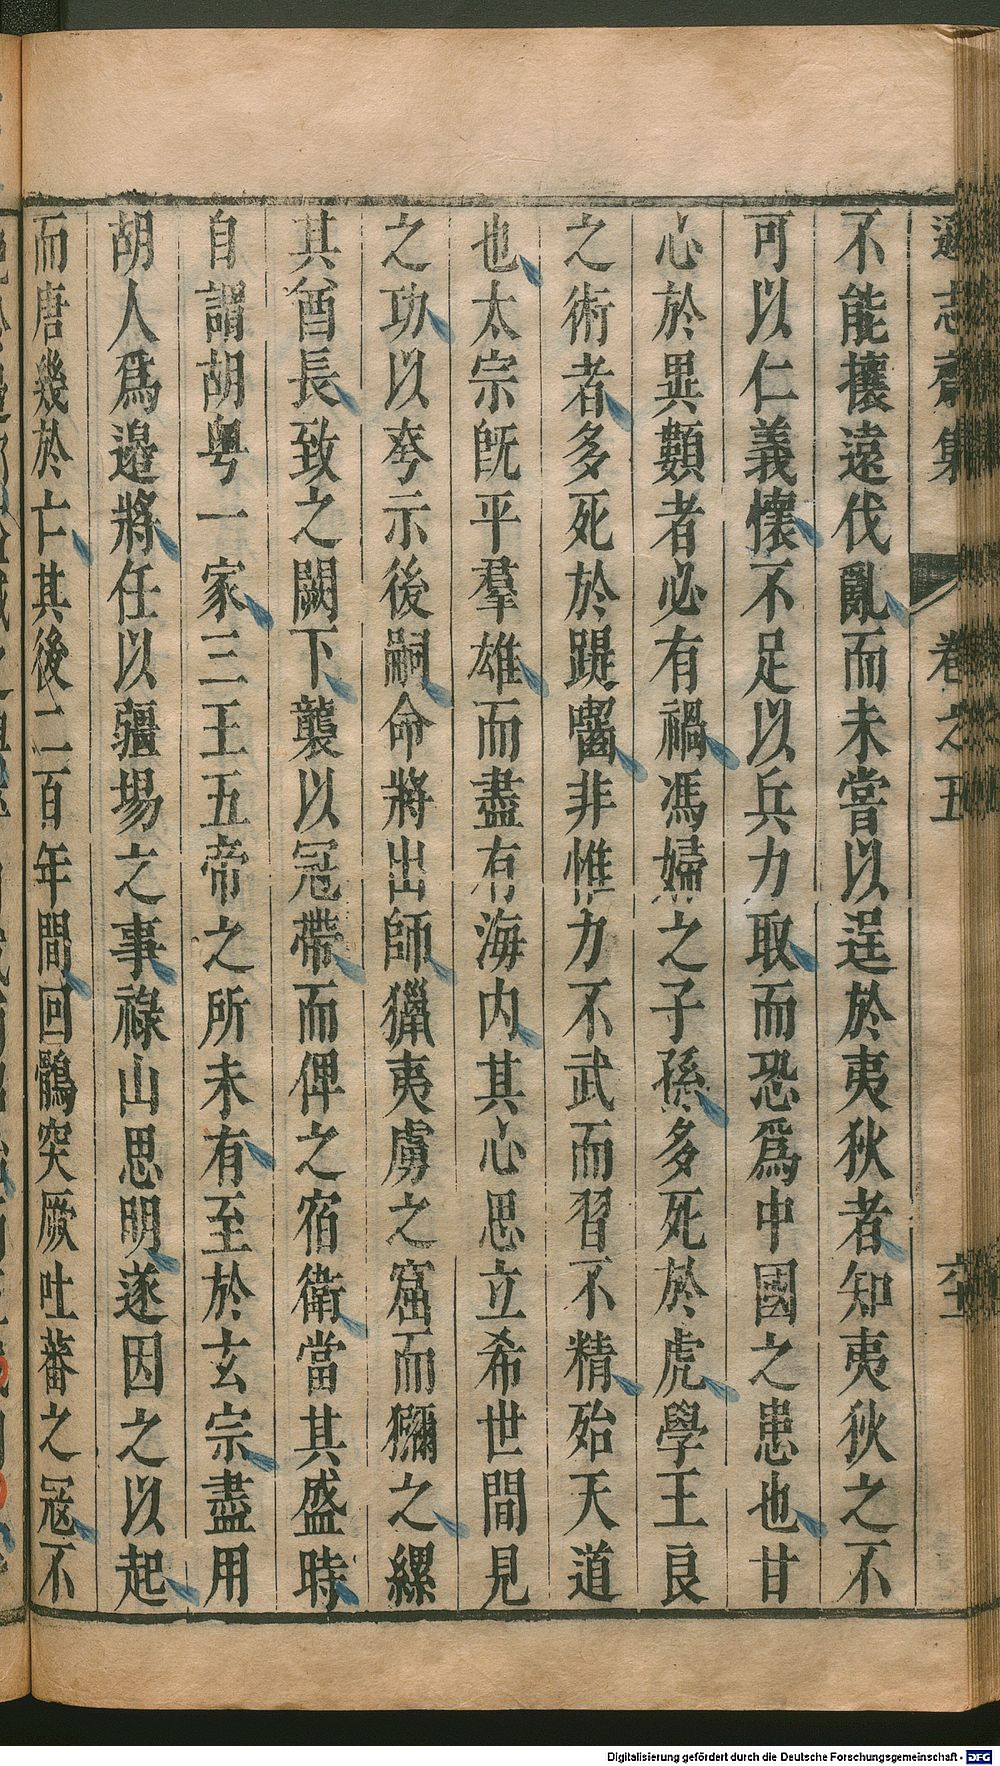 遜志齋集 卷之五
不能攘遠伐亂而未嘗以逞於夷狄者知夷狄之不
可以仁義懷不足以兵力取而恐爲中國之患也甘
心於異類者必有禍馮婦之子孫多死於虎學王良
之術者多死於踶嚙非惟力不武而習不精殆天道
也太宗旣平羣雄而盡有海内其心思立希世間見
之功以夸示後嗣命將出師獵夷虜之窟而獮之縲
其酋長致之闕下襲以冠帶而俾之宿衛當其盛時
自謂胡粤一家三王五帝之所未有至於玄宗盡用
胡人爲邉將任以疆埸之事祿山思明遂因之以起
而唐幾於亡其後二百年間回鶻突厥吐蕃之冦不
Digitalisierung gefördert durch die Deutsche Forschungsgemeinschaft - DFG